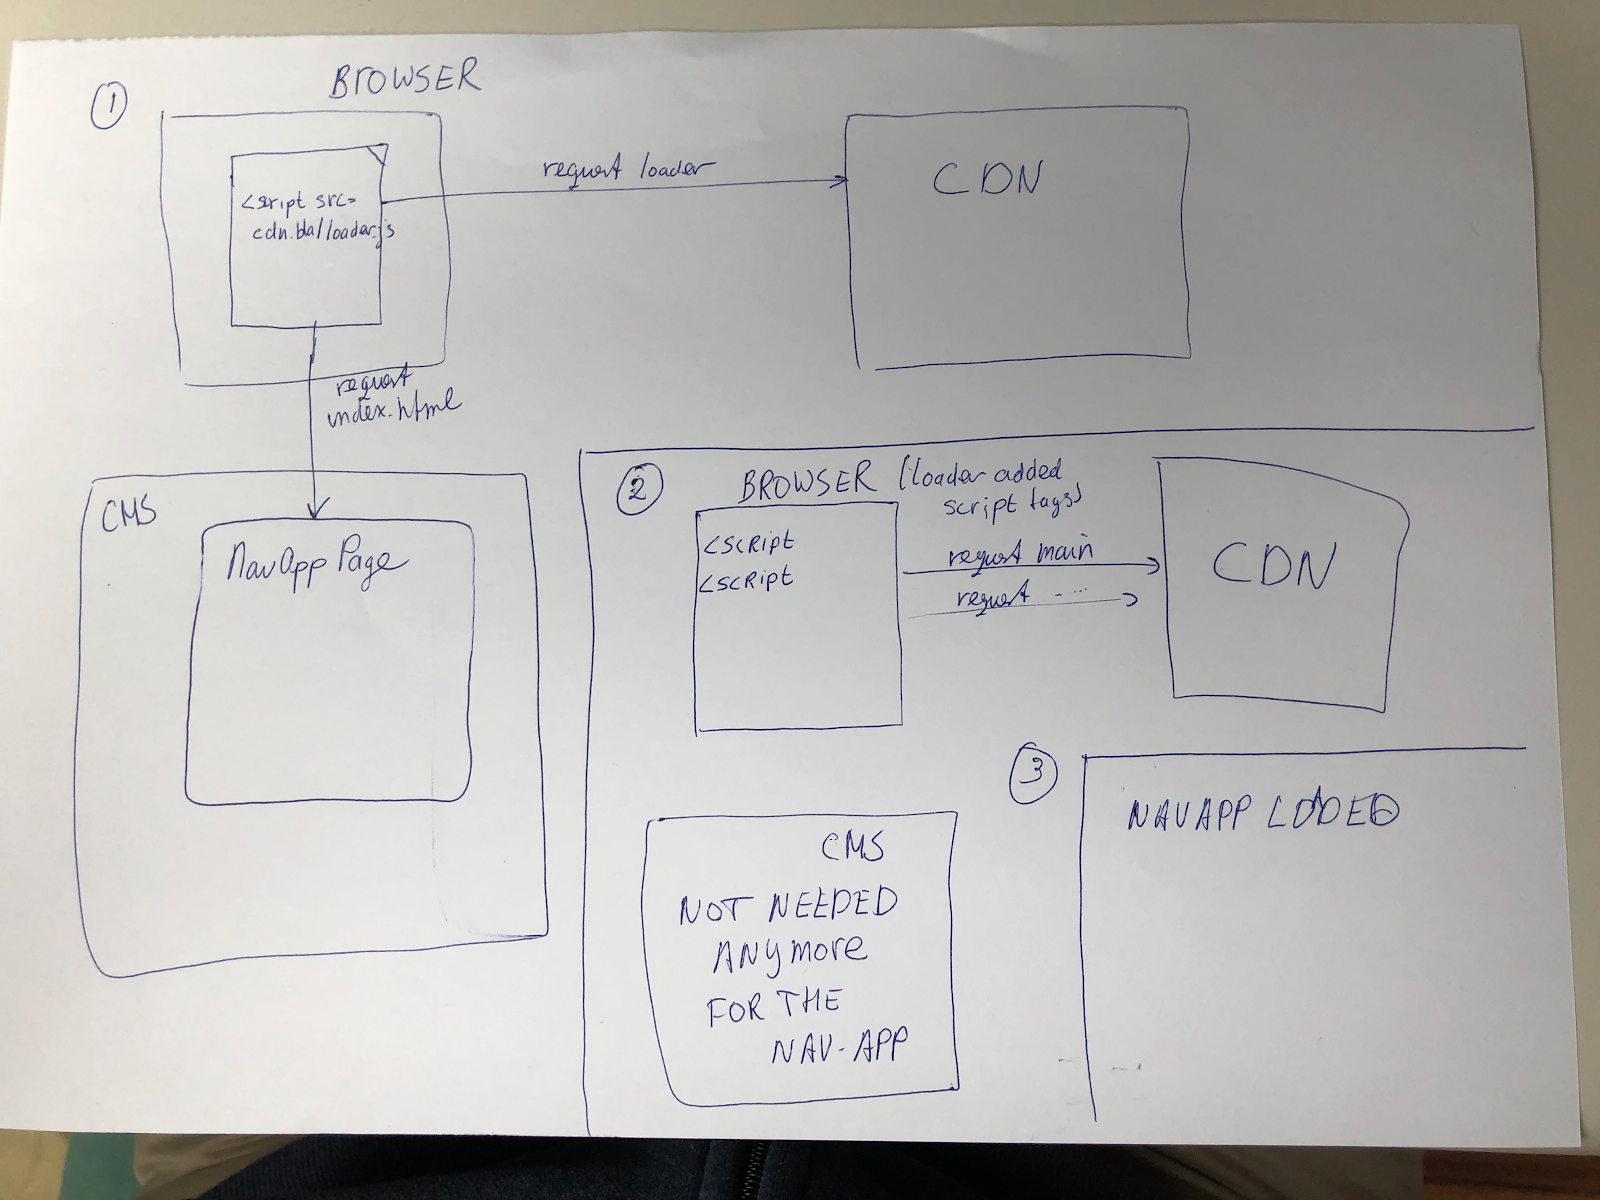 1
BROWSER
<script src=
cdn.bla/loader.js
request loader
CDN
request
index.html
CMS
NavApp Page
2
BROWSER (loader added
script tags)
<SCRIPT
<SCRIPT
request main
request - ...
CDN
CMS
NOT NEEDED
ANYMORE
FOR THE
NAV-APP
3
NAVAPP LOADED